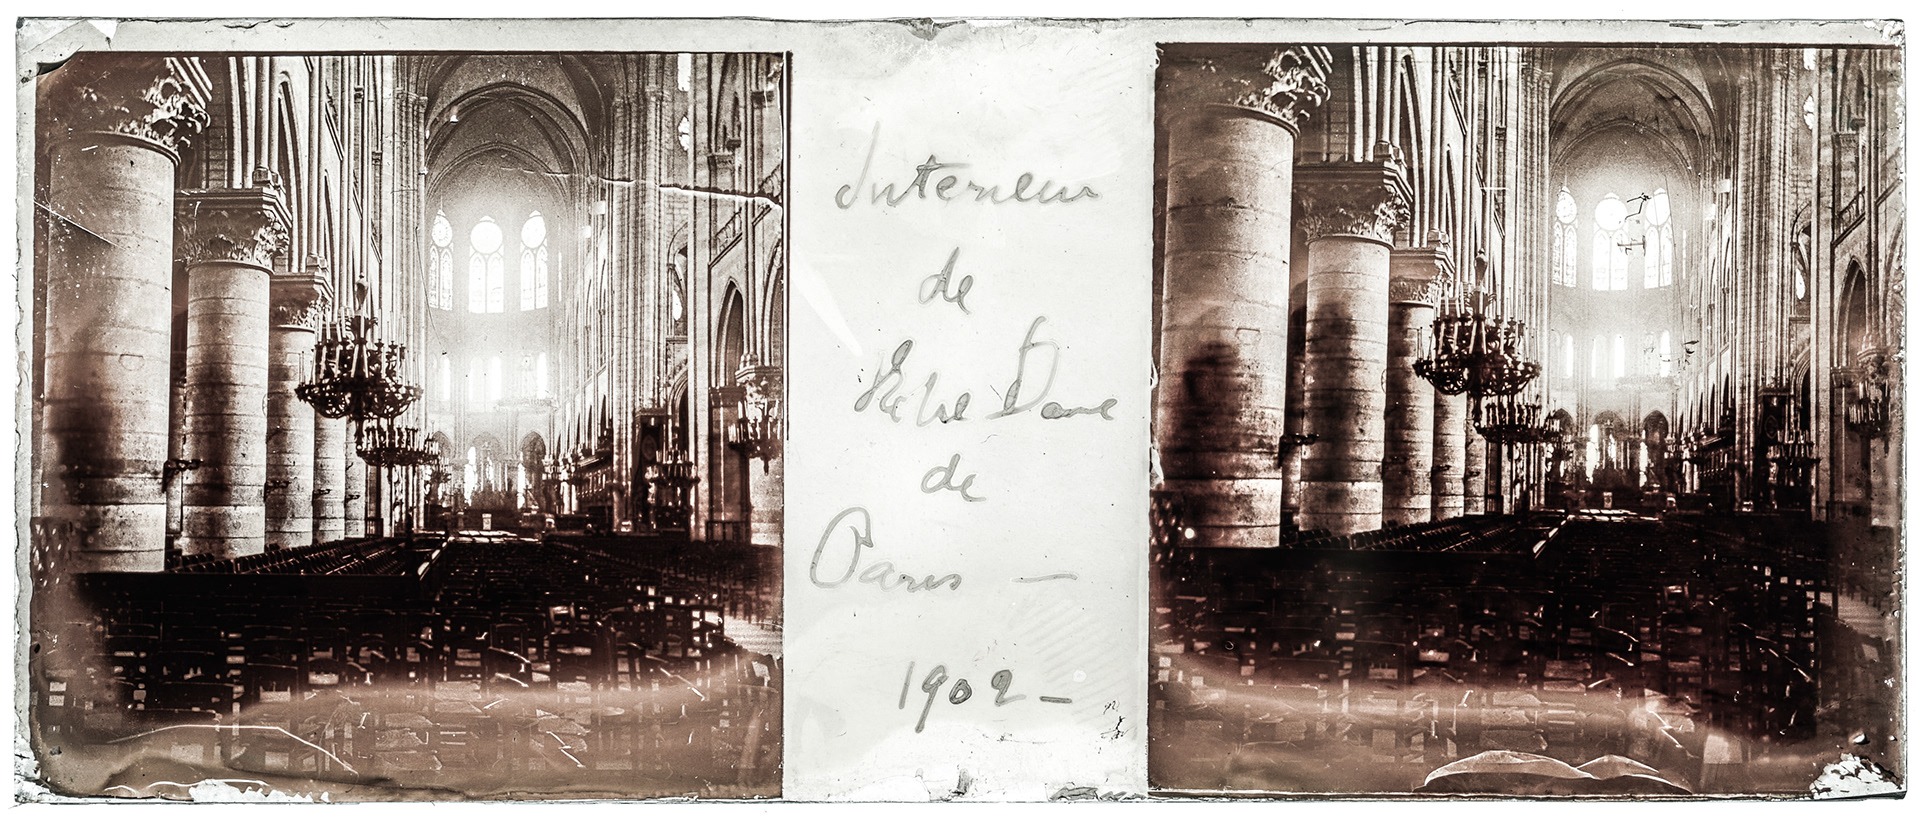 Interieur
de
Notre Dame
de
Paris —
1902 —